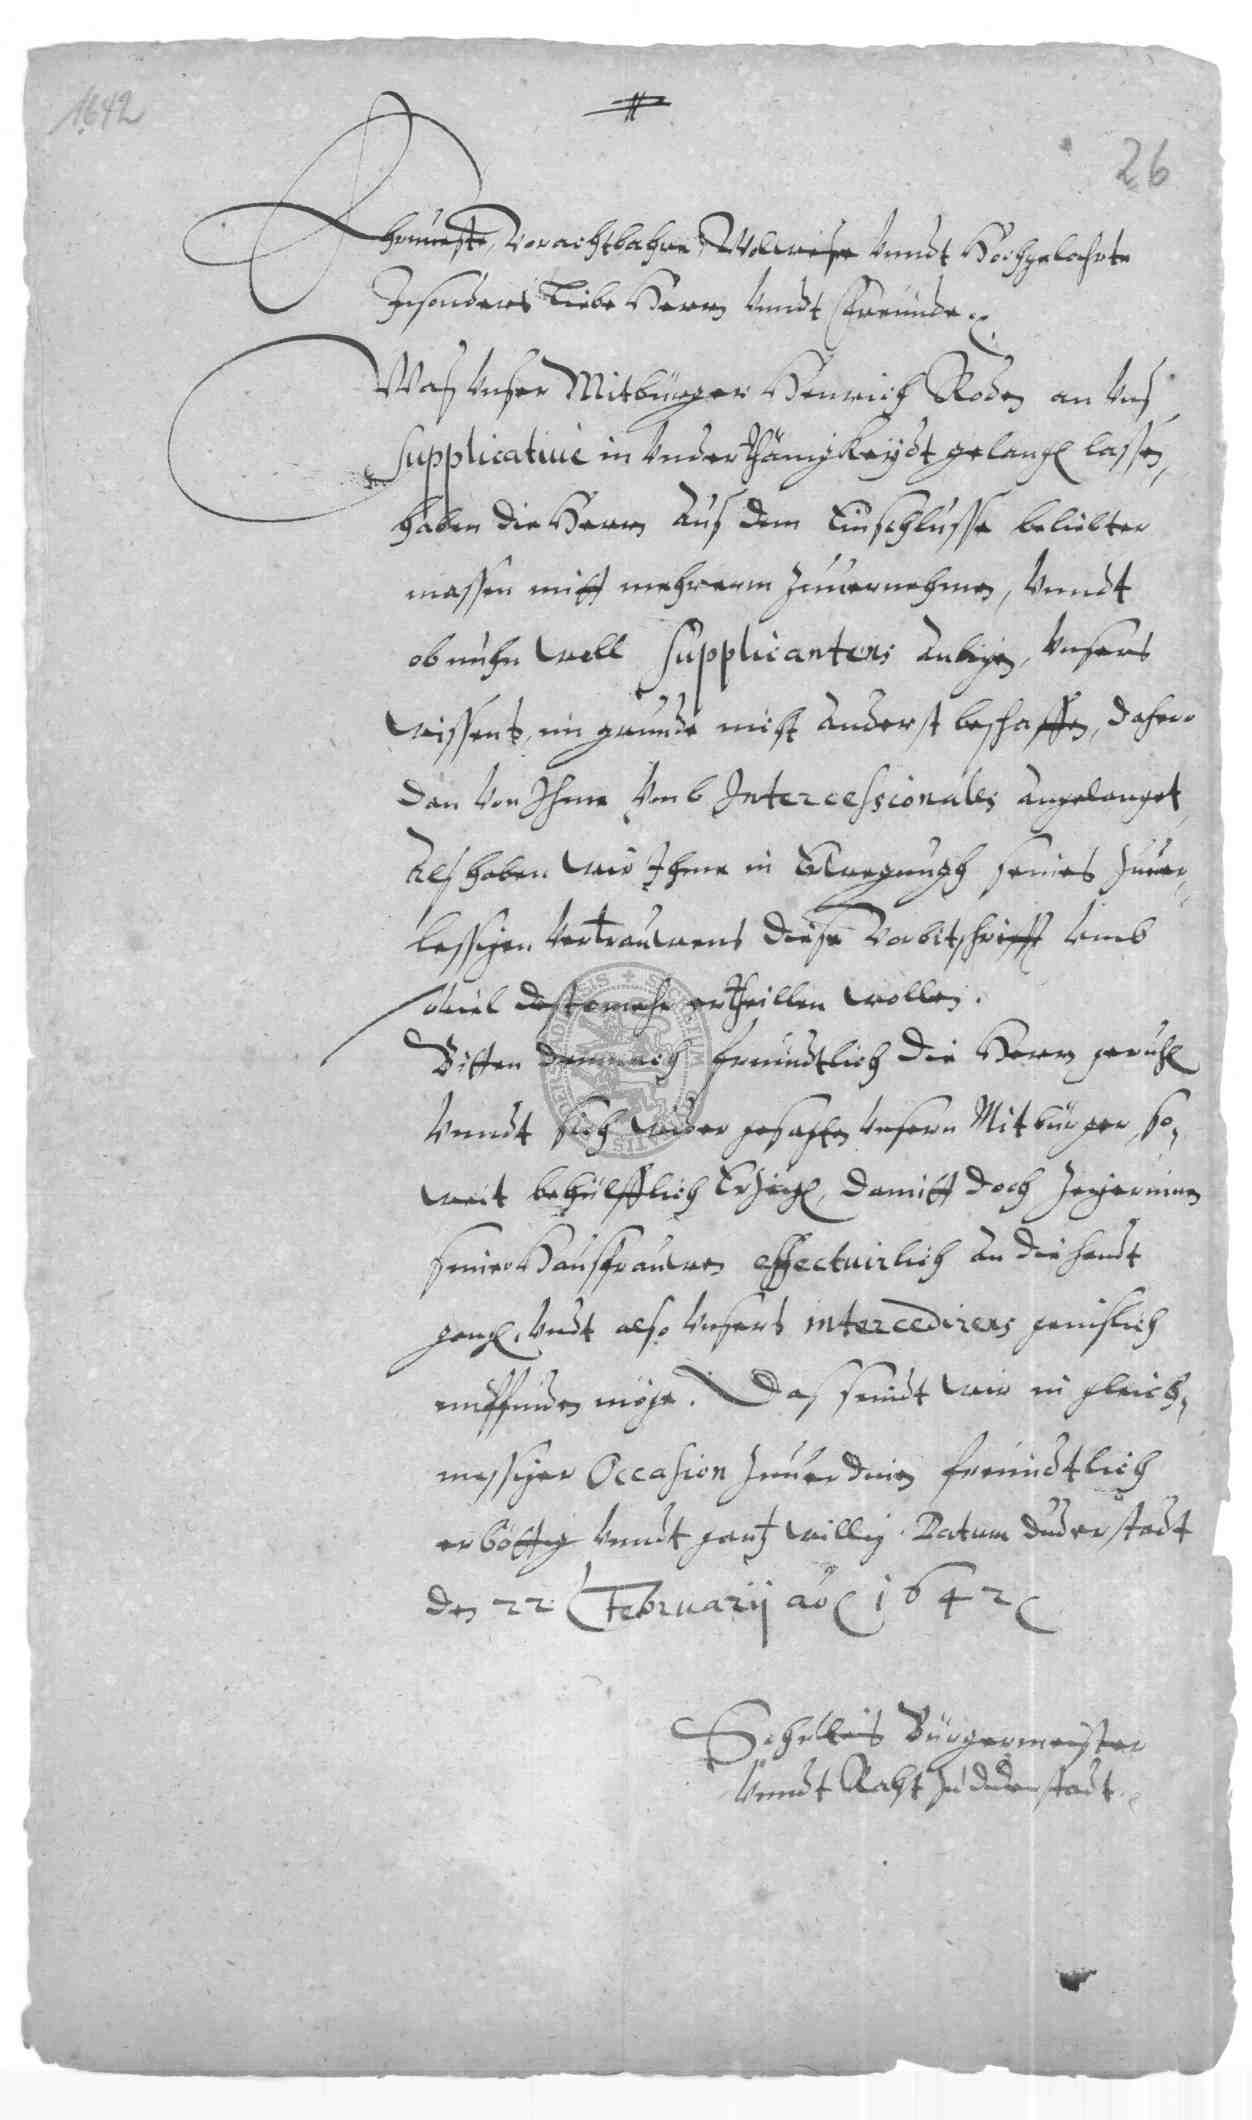 1642
26
Ehrnueste, Vorachtbahre, Wolweise Vnndt Hochgelahrte
Insonders Liebe Herrn Vnndt Freunde.
Was Vnser Mitbürger Henrich Roden an Vns
Supplicatiuè in Vnderthänigkeydt gelangen lassen,
haben die Herrn Aus dem Einschlusse beliebter
massen mitt mehrerm Zuuernehmen, Vnndt
ob nuhn well Supplicantens Anligen, Vnsers
wissents, im grunde nicht anderst beschaffen, dahero
dan Von Ihme Vmb Intercessionales angelanget,
Als haben wir Ihme in Erwegungh seines Zuuer-
lessigen Vertrauwens diese Vorbitschrifft Vmb
souiel destomehr ertheillen wollen.
Bitten demnach freundtlich die Herrn geruhen
Vnndt sich wider gesachten Vnsern Mitbürger, so-
weit behülfflich Erzeigen, damitt doch
seiner Hausfrauwen effectuirlich an die handt
gangen, Vndt also Vnsers intercedirens genislich
empfinden möge. Das seindt wir in gleich-
messiger Occasion Zuuerdinen freundtlich
erböttig Vnndt gantz willig. Datum Duderstadt
den 22 Februarij aõ 1642
Schulteis Bürgermeyster
Vnndt Raht Zu Duderstadt